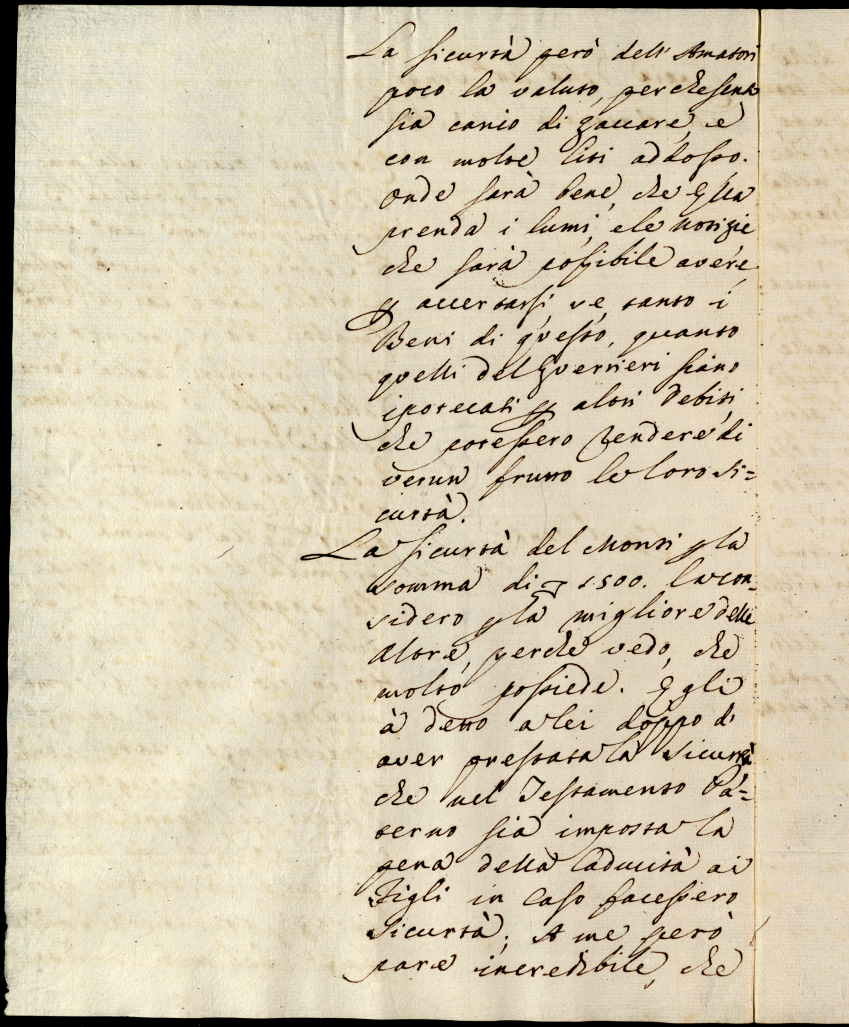 La sicurtà però dell'Amatori
poco la valuto, perche sento
sia carico di zaccare, e
con molte liti addosso.
Onde sarà bene, che Ella
prenda i lumi, e le notizie
che sarà possibile avere,
p accertarsi, se tanto i
Beni di questo, quanto
quelli del Guerrieri siano
ipotecati p altri debiti,
che potessero rendere di
verun frutto le loro si=
curtà.
La sicurtà del Monti p la
somma di 1500. la con=
sidero p la migliore delle
altre, perche vedo, che
molto possiede. Egli
à detto a lei doppo di
aver prestata la sicurtà
che nel Testamento Pa=
terno sia imposta la
pena della Caducità ai
Figli in Caso facessero
sicurtà; A me però
pare incredibile, che